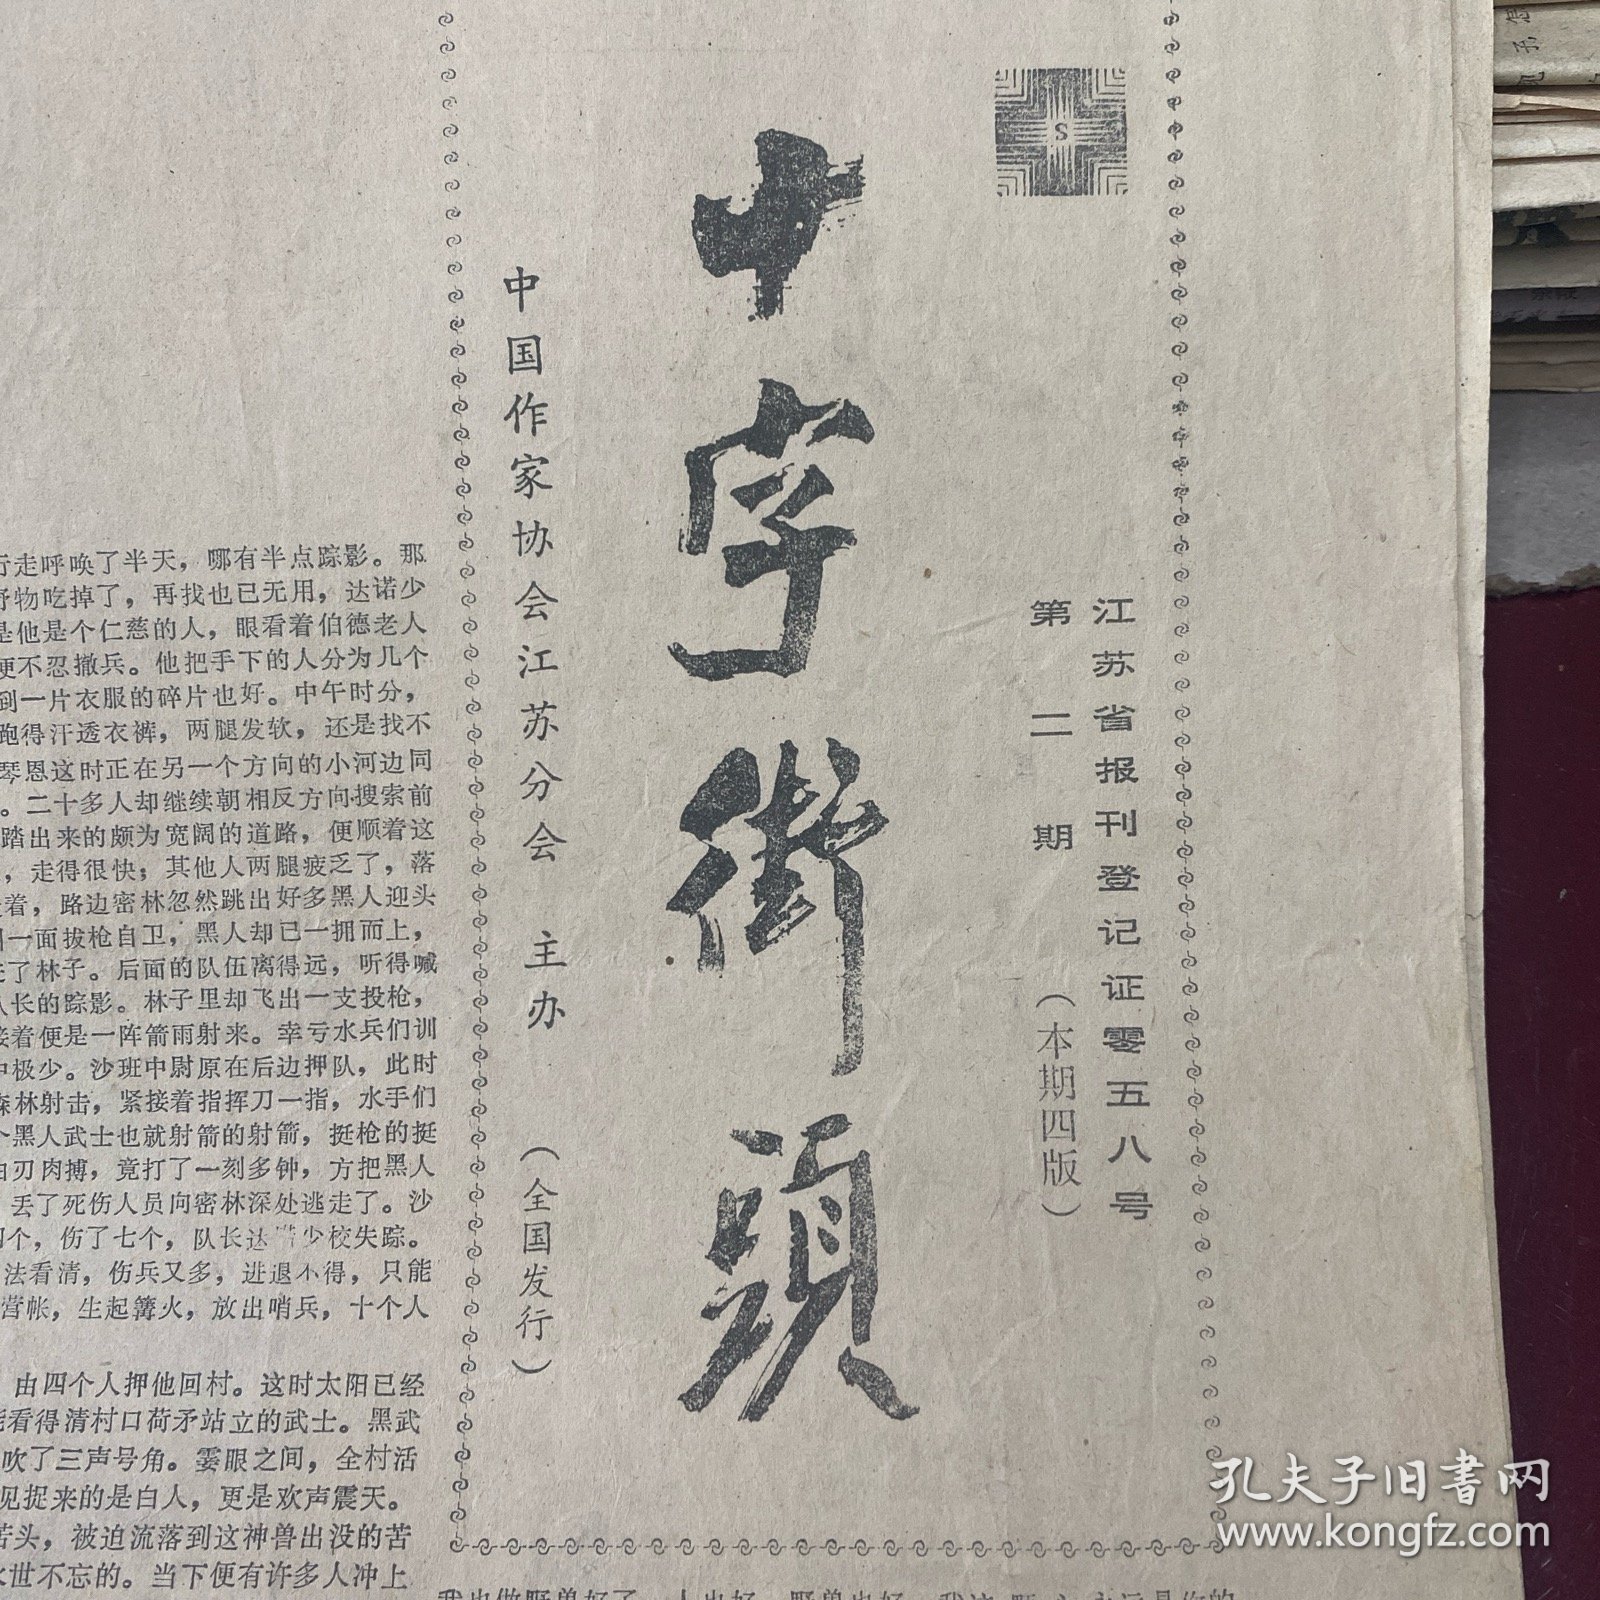 S
十字街頭
江苏省报刊登记证零五八号
第二期
(本期四版)
中国作家协会江苏分会 主办
(全国发行)
行走呼唤了半天，哪有半点踪影。那
物吃掉了，再找也已无用，达诺少
是他是个仁慈的人，眼看着伯德老人
便不忍撤兵。他把手下的人分为几个
到一片衣服的碎片也好。中午时分，
跑得汗透衣裤，两腿发软，还是找不
琴恩这时正在另一个方向的小河边同
。二十多人却继续朝相反方向搜索前
踏出来的颇为宽阔的道路，便顺着这
，走得很快；其他人两腿疲乏了，落
着，路边密林忽然跳出好多黑人迎头
一面拔枪自卫，黑人却已一拥而上，
了林子。后面的队伍离得远，听得喊
队长的踪影。林子里却飞出一支投枪，
接着便是一阵箭雨射来。幸亏水兵们训
中极少。沙班中尉原在后边押队，此时
森林射击，紧接着指挥刀一指，水手们
个黑人武士也就射箭的射箭，挺枪的挺
白刃肉搏，竟打了一刻多钟，方把黑人
丢了死伤人员向密林深处逃走了。沙
个，伤了七个，队长达诺少校失踪。
法看清，伤兵又多，进退不得，只能
营帐，生起篝火，放出哨兵，十个人
由四个人押他回村。这时太阳已经
能看得清村口荷矛站立的武士。黑武
吹了三声号角。霎眼之间，全村活
见捉来的是白人，更是欢声震天。
苦头，被迫流落到这神兽出没的苦
永世不忘的。当下便有许多人冲上
孔夫子旧书网
www.kongfz.com